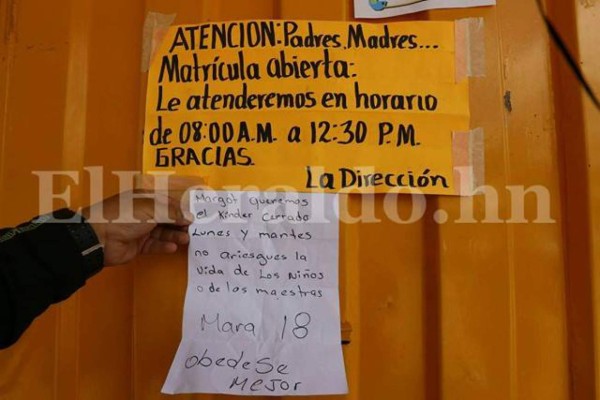 ATENCION: Padres, Madres...
Matrícula abierta:
Le atenderemos en horario
de 08:00 A.M. a 12:30 P.M.
GRACIAS.
La Dirección
ElHeraldo.hn
Margot queremos
el Kinder Cerrado
Lunes y mantes
no ariesgues la
vida de Los Niños
o de las maestras
Mara 18
obedeSe
mejor